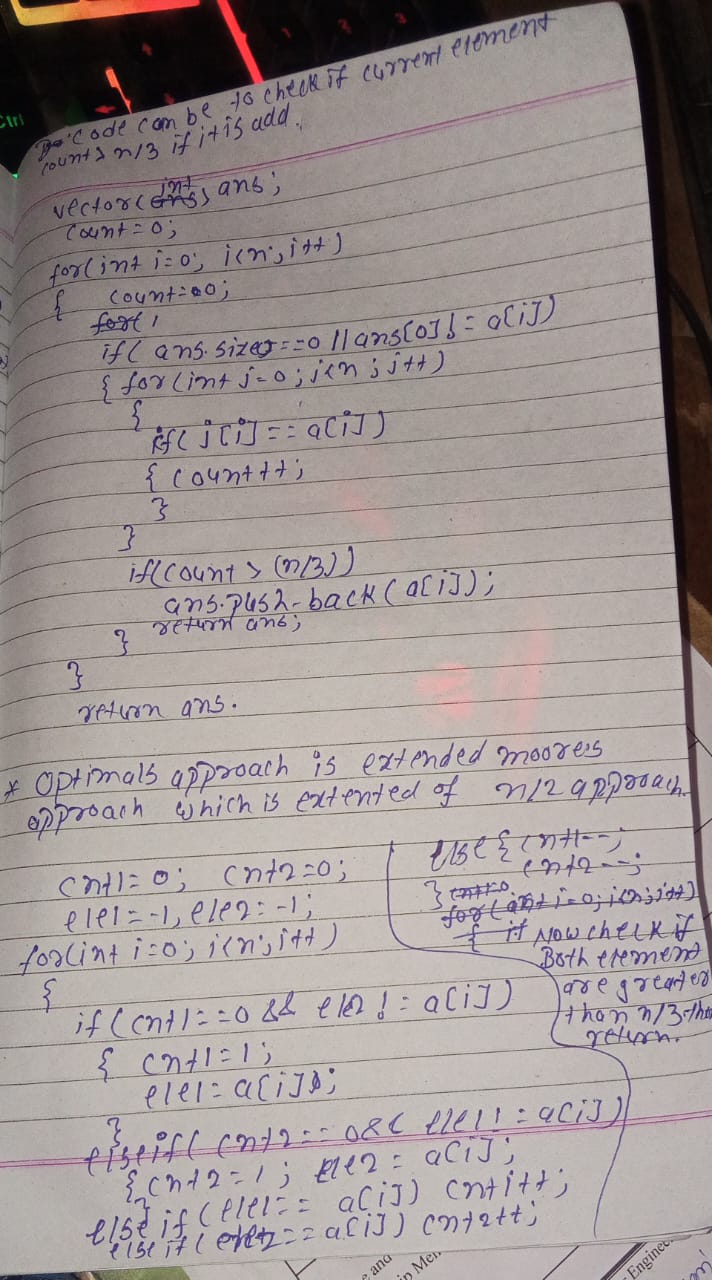 Code can be to check if current element
count > n/3 if it is add.
vector<int> ans;
count = 0;
for(int i=0; i<n; i++)
{ count=0;
for(
if( ans.size==0 || ans[0] != a[i])
{ for(int j=0; j<n; j++)
{
if( j[i] == a[i])
{ count++;
}
}
if(count > (n/3))
ans.push-back(a[i]);
return ans;
}
}
return ans.
* Optimals approach is extended moores
approach which is extented of n/2 approach.
cnt1=0; cnt2=0;
ele1=-1, ele2=-1;
for(int i=0; i<n; i++)
{
if(cnt1==0 && ele2 != a[i])
{ cnt1=1;
ele1=a[i];
}
elseif( cnt2==0 && ele1 != a[i])
{ cnt2=1; ele2=a[i];
}
else if (ele1== a[i]) cnt1++;
else if (ele2==a[i]) cnt2++;
else { cnt1--;
cnt2--;
}
for(int i=0; i<n; i++)
{ if Now check if
Both element
are greater
than n/3 then
return.
Ctrl
1
2
3
e and
Engineer